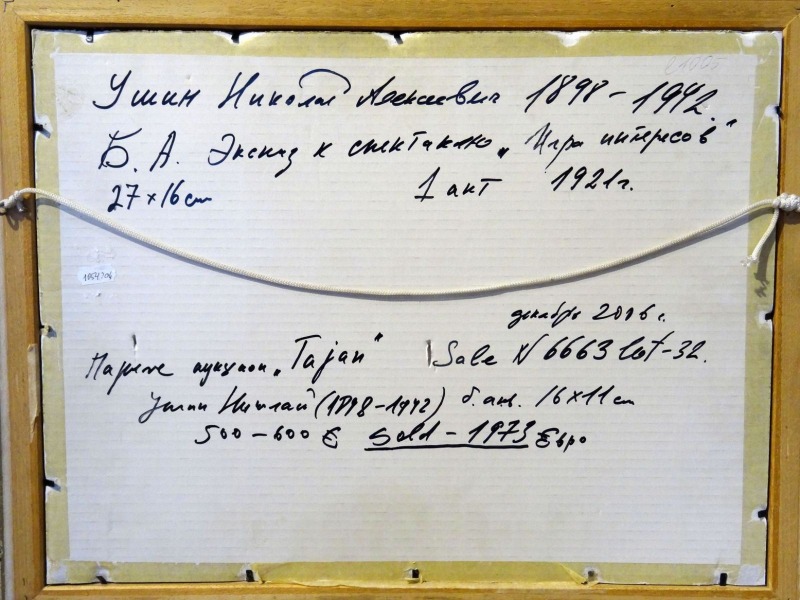 Ушин Николай Алексеевич 1898-1942.
Б. А. Эскиз к спектаклю „Игра интересов"
27×16 cm 1 акт 1921г.
1854704
декабрь 2006 г.
Париж аукцион „Tajan" Sale N 6663 lot-32.
Ушин Николай (1898-1942) б. акв. 16×11 cm
500-600 € Sold - 1973 Евро